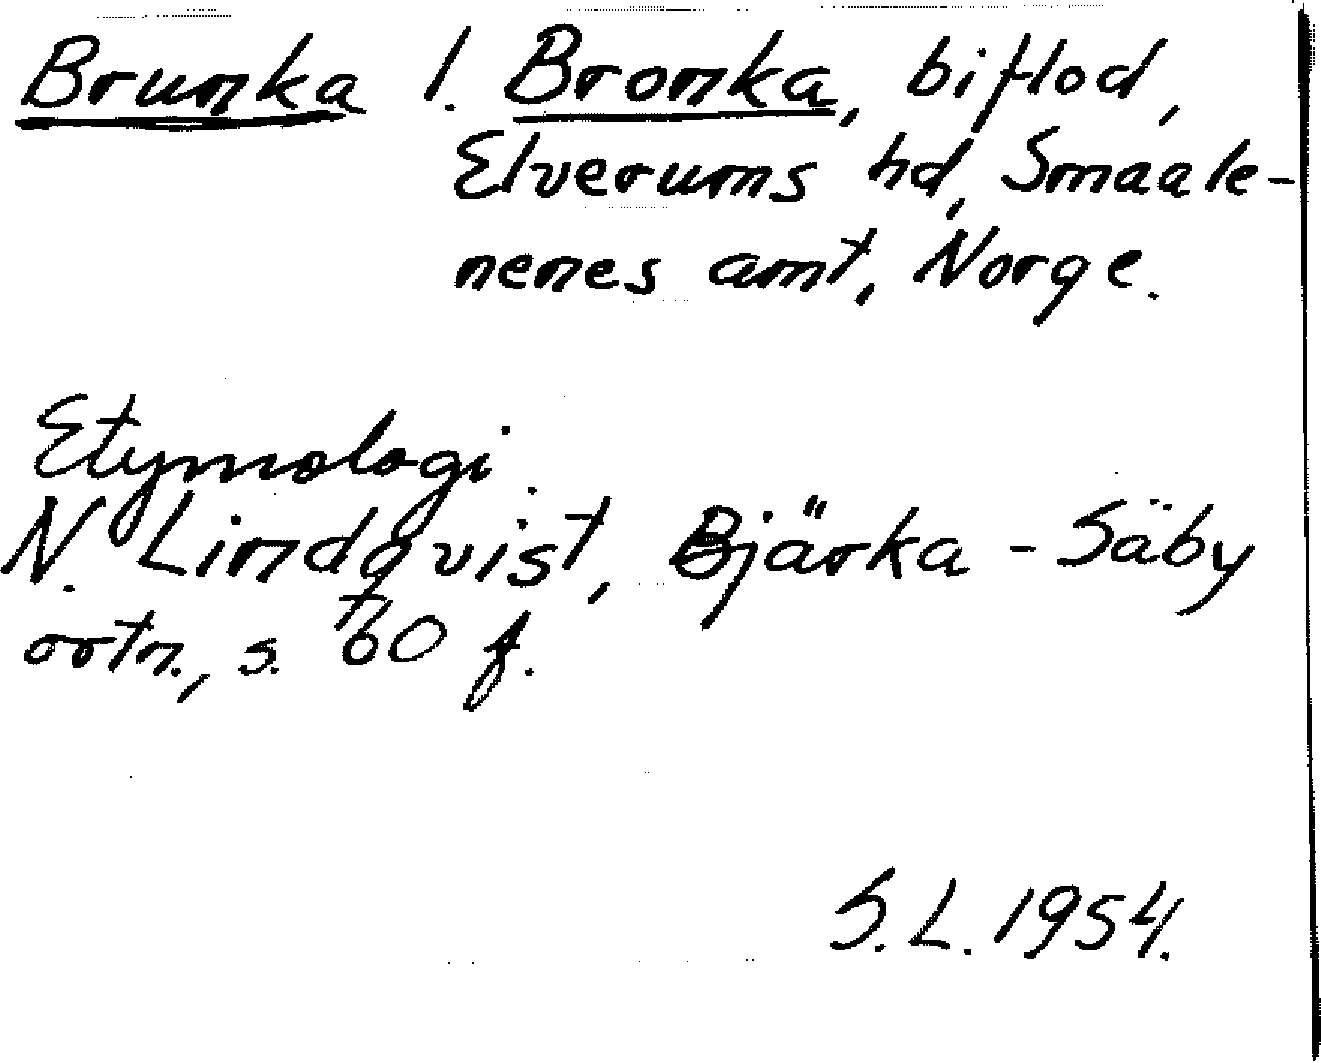 Brunka l. Bronka, biflod,
Elverums hd, Smaale-
nenes amt, Norge.
Etymologi.
N. Lindqvist, Bjärka-Säby
ortn., s. 60 f.
S.L. 1954.